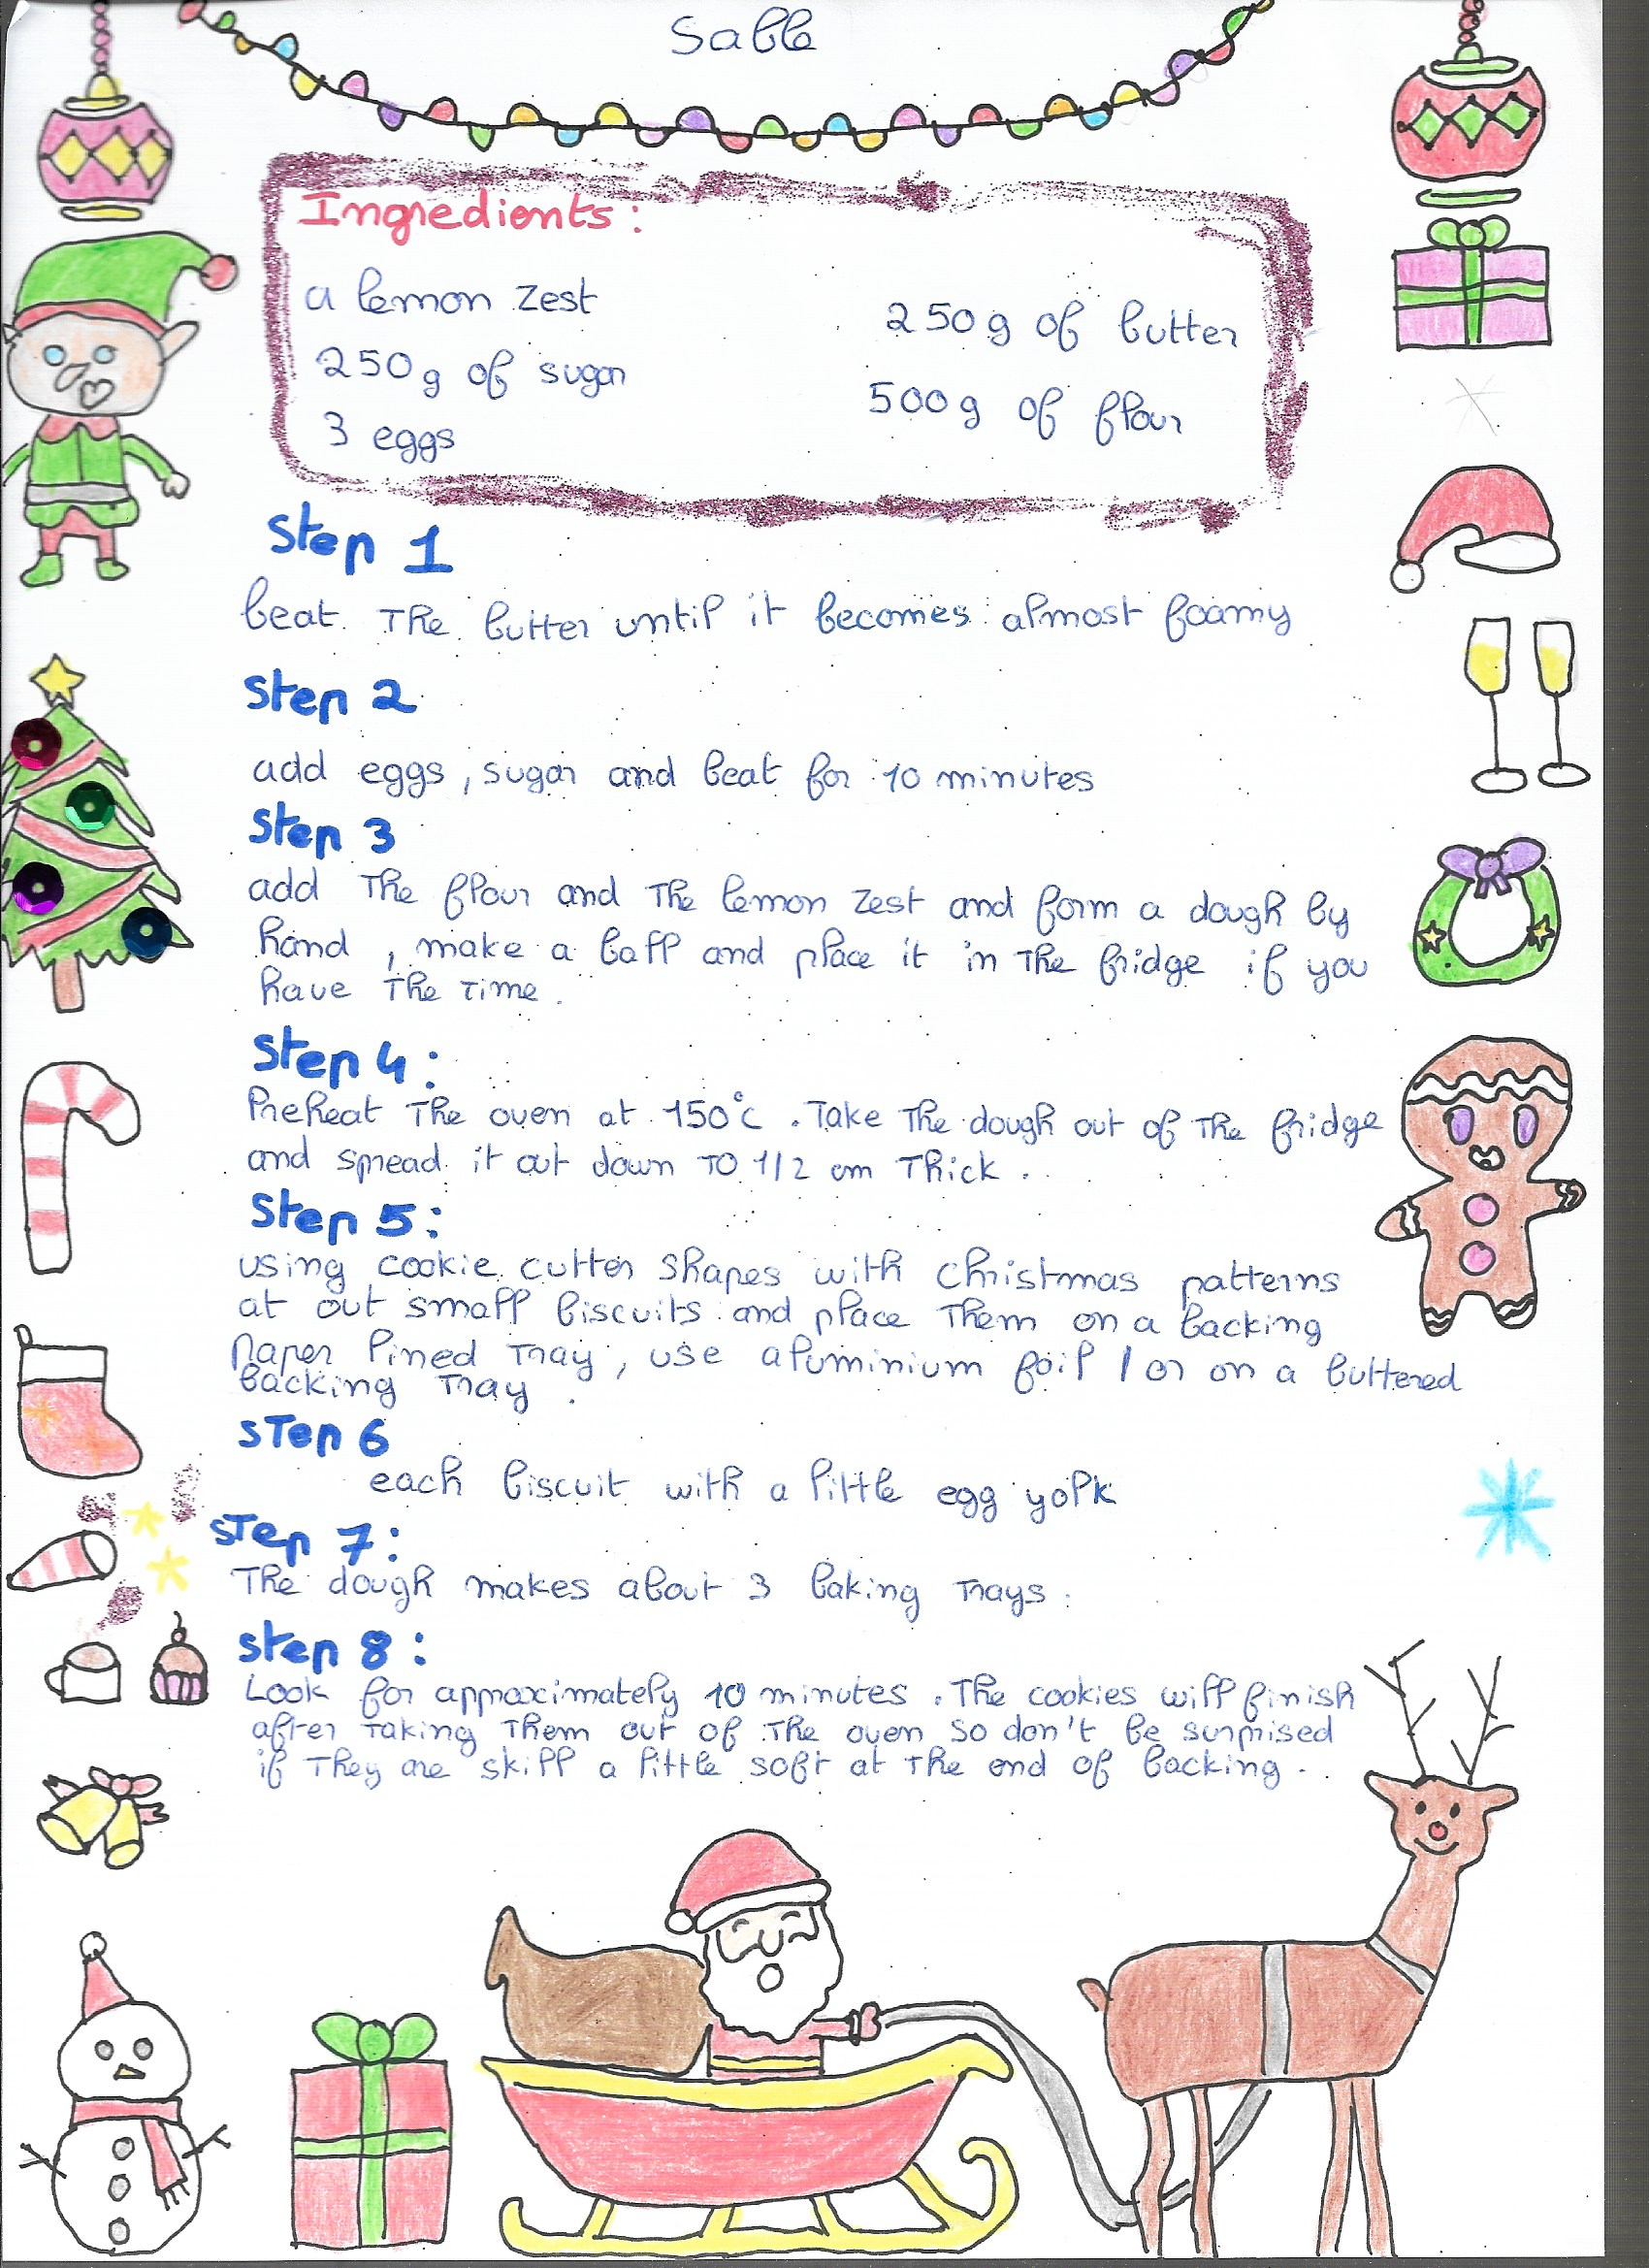 Sable
Ingredients:
a lemon zest
250g of sugar
3 eggs
250g of butter
500g of flour
Step 1
beat the butter until it becomes almost foamy
Step 2
add eggs, sugar and beat for 10 minutes
Step 3
add the flour and the lemon zest and form a dough by
hand, make a ball and place it in the fridge if you
have the time.
Step 4:
Preheat the oven at 150°c. Take the dough out of the fridge
and spread it out down to 1/2 cm thick.
Step 5:
using cookie cutter shapes with christmas patterns
at out small biscuits and place them on a backing
paper lined tray, use aluminium foil / or on a buttered
backing tray.
STep 6
each biscuit with a little egg yolk
STep 7:
The dough makes about 3 baking trays.
Step 8:
Look for approximately 10 minutes. The cookies will finish
after taking them out of the oven so don't be surprised
if they are skill a little soft at the end of backing.